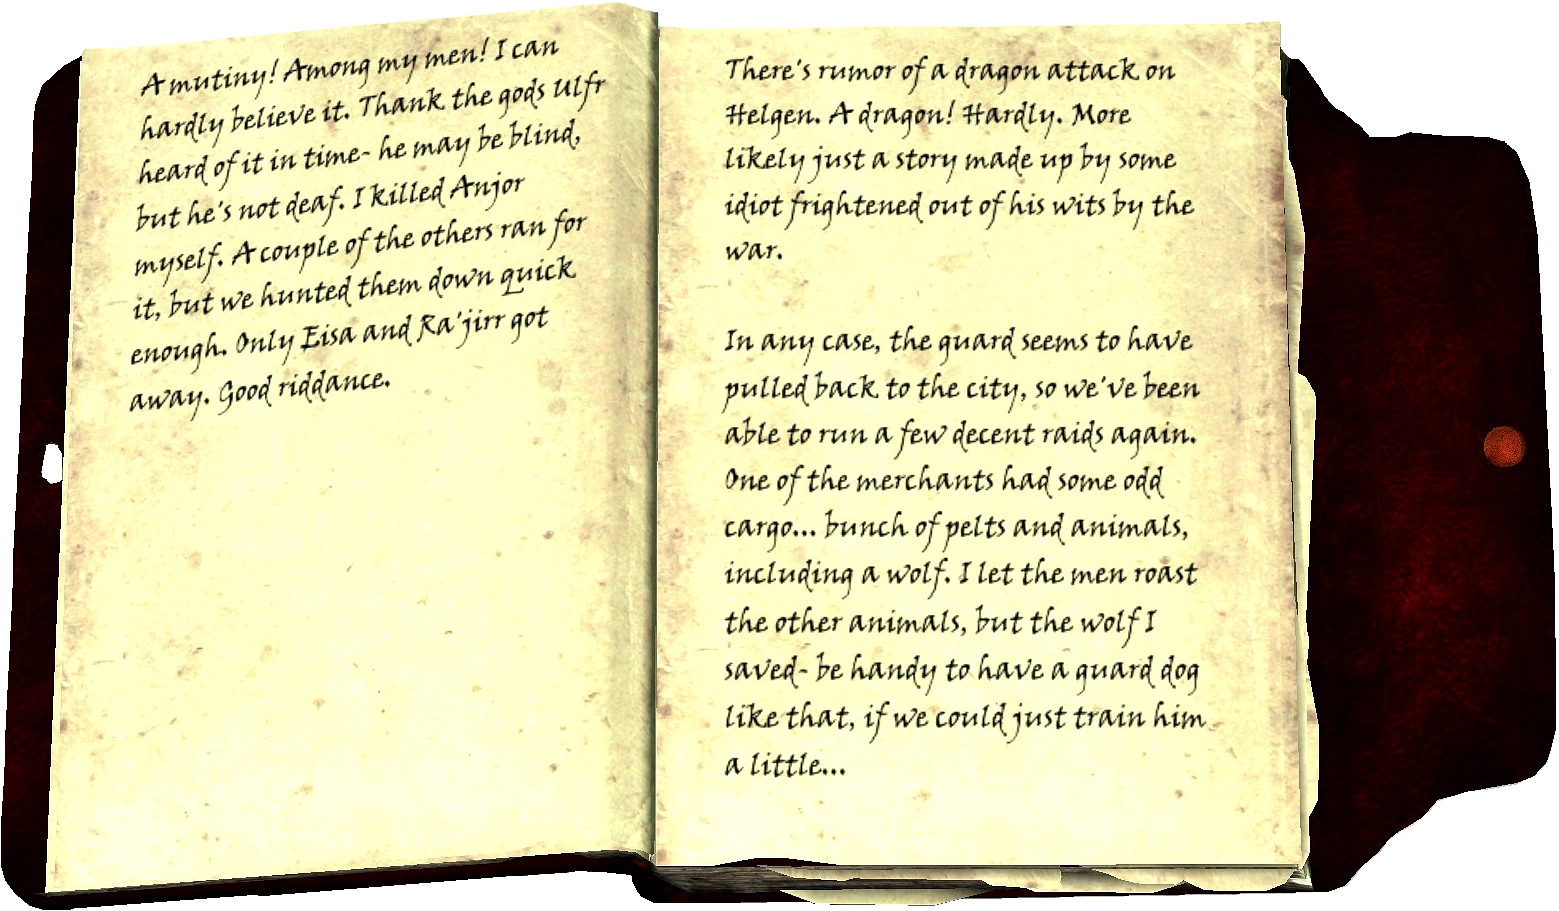 A mutiny! Among my men! I can
hardly believe it. Thank the gods Ulfr
heard of it in time- he may be blind,
but he's not deaf. I killed Anjor
myself. A couple of the others ran for
it, but we hunted them down quick
enough. Only Eisa and Ra'jirr got
away. Good riddance.
There's rumor of a dragon attack on
Helgen. A dragon! Hardly. More
likely just a story made up by some
idiot frightened out of his wits by the
war.
In any case, the guard seems to have
pulled back to the city, so we've been
able to run a few decent raids again.
One of the merchants had some odd
cargo... bunch of pelts and animals,
including a wolf. I let the men roast
the other animals, but the wolf I
saved- be handy to have a guard dog
like that, if we could just train him
a little...